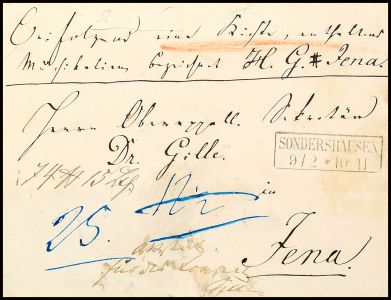 Beifolgend eine Kiste, enthaltend
Musikalien bezeichnet H. G. # Jena.
Herrn Oberappell. Sekretär
Dr. Gille.
SONDERSHAUSEN
9/2 * 10-11
in
25.
Jena.